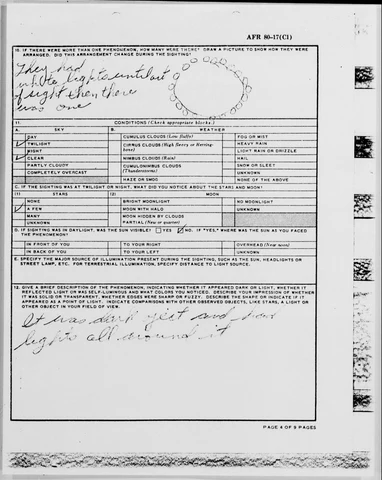 AFR 80-17(C1)
10. IF THERE WERE MORE THAN ONE PHENOMENON, HOW MANY WERE THERE? DRAW A PICTURE TO SHOW HOW THEY WERE
ARRANGED. DID THIS ARRANGEMENT CHANGE DURING THE SIGHTING?
They had
white lights until out
sight then there
was one
11. CONDITIONS (Check appropriate blocks.)
A. SKY B. WEATHER
DAY CUMULUS CLOUDS (Low fluffy) FOG OR MIST
TWILIGHT CIRRUS CLOUDS (High fleecy or Herring-bone) HEAVY RAIN
NIGHT LIGHT RAIN OR DRIZZLE
CLEAR NIMBUS CLOUDS (Rain) HAIL
PARTLY CLOUDY CUMULONIMBUS CLOUDS (Thunderstorms) SNOW OR SLEET
COMPLETELY OVERCAST UNKNOWN
HAZE OR SMOG NONE OF THE ABOVE
C. IF THE SIGHTING WAS AT TWILIGHT OR NIGHT, WHAT DID YOU NOTICE ABOUT THE STARS AND MOON?
(1) STARS (2) MOON
NONE BRIGHT MOONLIGHT NO MOONLIGHT
A FEW MOON WITH HALO UNKNOWN
MANY MOON HIDDEN BY CLOUDS
UNKNOWN PARTIAL (New or quarter)
D. IF SIGHTING WAS IN DAYLIGHT, WAS THE SUN VISIBLE? YES NO. IF "YES," WHERE WAS THE SUN AS YOU FACED
THE PHENOMENON?
IN FRONT OF YOU TO YOUR RIGHT OVERHEAD (Near noon)
IN BACK OF YOU TO YOUR LEFT UNKNOWN
E. SPECIFY THE MAJOR SOURCE OF ILLUMINATION PRESENT DURING THE SIGHTING, SUCH AS THE SUN, HEADLIGHTS OR
STREET LAMP, ETC. FOR TERRESTRIAL ILLUMINATION, SPECIFY DISTANCE TO LIGHT SOURCE.
12. GIVE A BRIEF DESCRIPTION OF THE PHENOMENON, INDICATING WHETHER IT APPEARED DARK OR LIGHT, WHETHER IT
REFLECTED LIGHT OR WAS SELF-LUMINOUS AND WHAT COLORS YOU NOTICED. DESCRIBE YOUR IMPRESSION OF WHETHER
IT WAS SOLID OR TRANSPARENT, WHETHER EDGES WERE SHARP OR FUZZY. DESCRIBE THE SHAPE OR INDICATE IF IT
APPEARED AS A POINT OF LIGHT. INDICATE COMPARISONS WITH OTHER OBSERVED OBJECTS, LIKE STARS, A LIGHT OR
OTHER OBJECT IN YOUR FIELD OF VIEW.
It was dark and had
lights all around it
PAGE 4 OF 9 PAGES